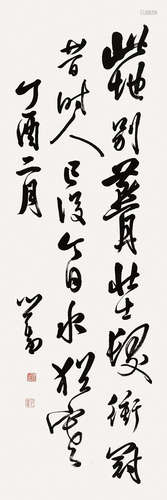 此地别燕丹壮士发衝冠
昔时人已没今日水犹寒
丁酉二月
心畬